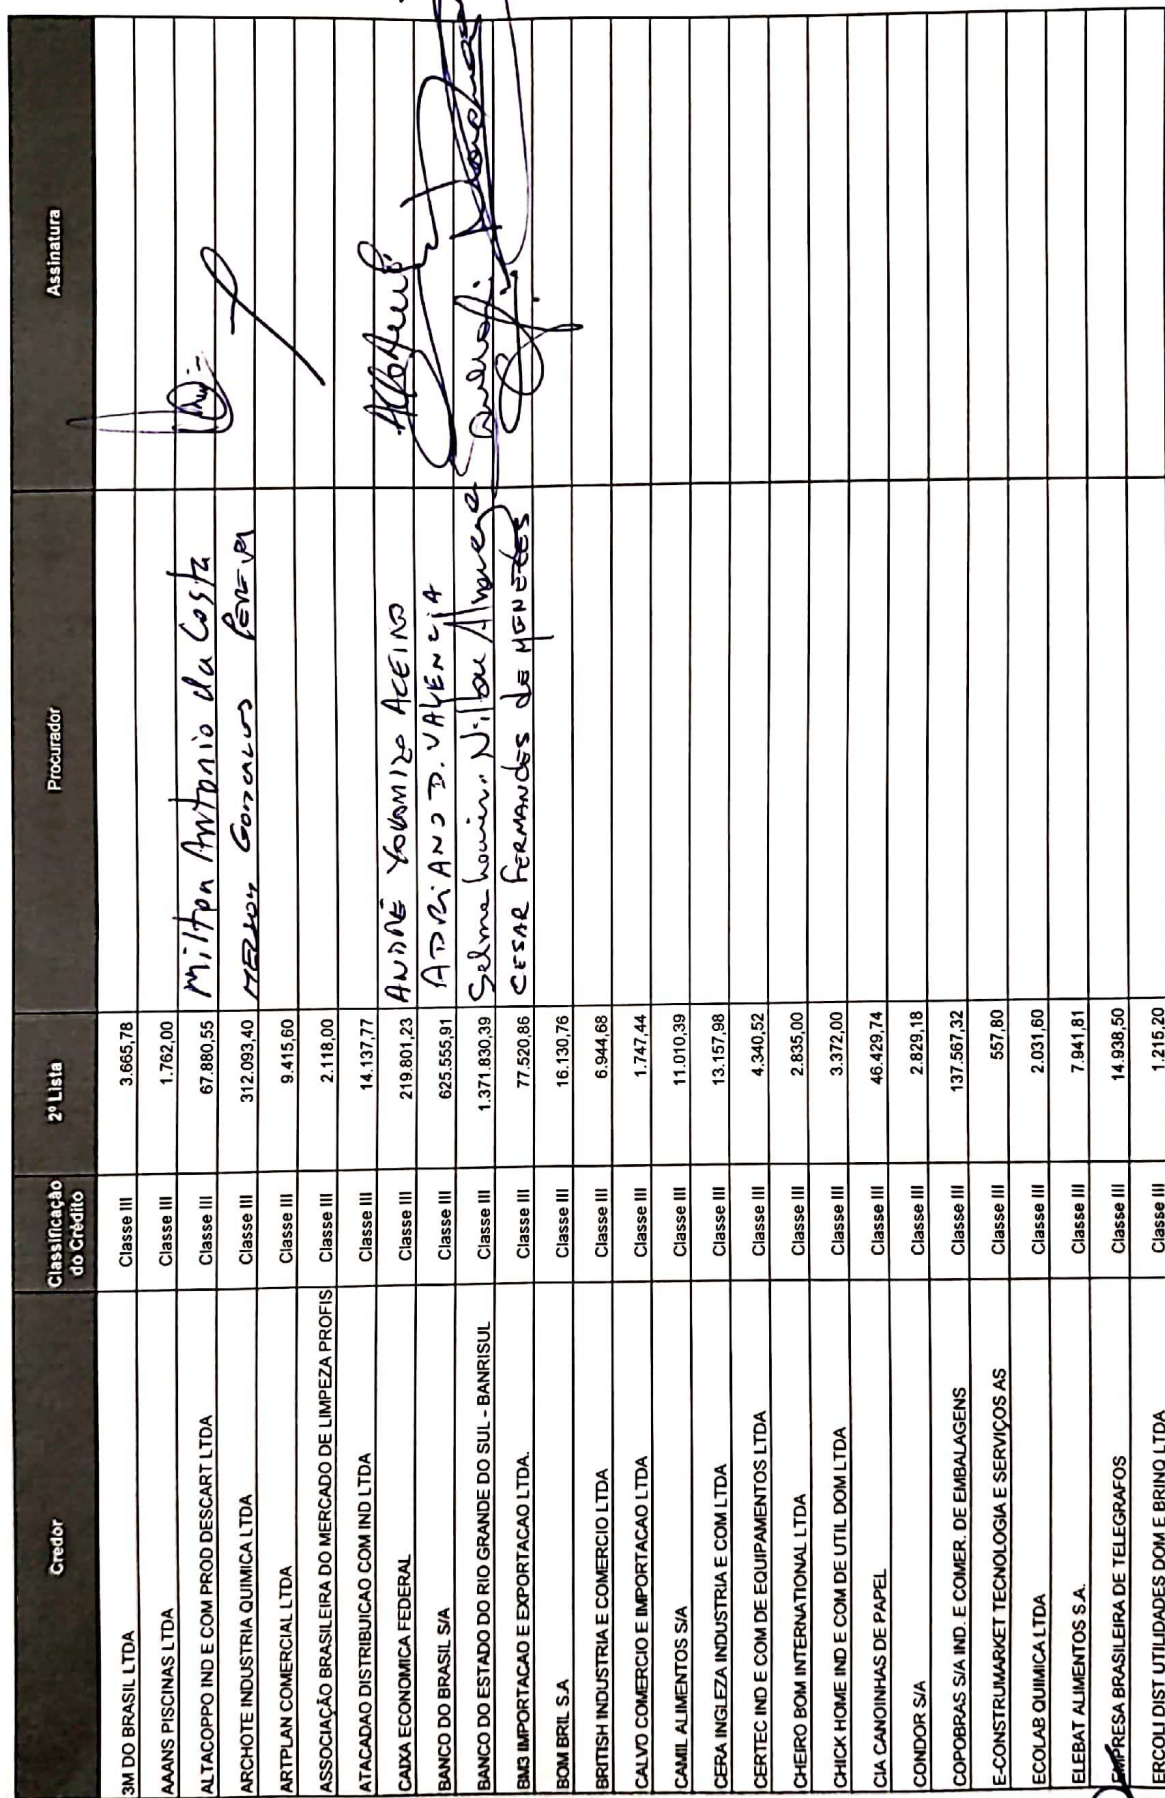 Credor Classificação do Crédito 2º Lista Procurador Assinatura
3M DO BRASIL LTDA Classe III 3.665,78
AAANS PISCINAS LTDA Classe III 1.762,00
ALTACOPPO IND E COM PROD DESCART LTDA Classe III 67.880,55 Milton Antonio da Costa
ARCHOTE INDUSTRIA QUIMICA LTDA Classe III 312.093,40
ARTPLAN COMERCIAL LTDA Classe III 9.415,60
ASSOCIAÇÃO BRASILEIRA DO MERCADO DE LIMPEZA PROFIS Classe III 2.118,00
ATACADAO DISTRIBUICAO COM IND LTDA Classe III 14.137,77
CAIXA ECONOMICA FEDERAL Classe III 219.801,23 ANDRÉ
BANCO DO BRASIL S/A Classe III 625.555,91 ADRIANO D. VALENCIA
BANCO DO ESTADO DO RIO GRANDE DO SUL - BANRISUL Classe III 1.371.830,39
BM3 IMPORTACAO E EXPORTACAO LTDA. Classe III 77.520,86 CESAR FERNANDES DE MENEZES
BOM BRIL S.A Classe III 16.130,76
BRITISH INDUSTRIA E COMERCIO LTDA Classe III 6.944,68
CALVO COMERCIO E IMPORTACAO LTDA Classe III 1.747,44
CAMIL ALIMENTOS S/A Classe III 11.010,39
CERA INGLEZA INDUSTRIA E COM LTDA Classe III 13.157,98
CERTEC IND E COM DE EQUIPAMENTOS LTDA Classe III 4.340,52
CHEIRO BOM INTERNATIONAL LTDA Classe III 2.835,00
CHICK HOME IND E COM DE UTIL DOM LTDA Classe III 3.372,00
CIA CANOINHAS DE PAPEL Classe III 46.429,74
CONDOR S/A Classe III 2.829,18
COPOBRAS S/A IND. E COMER. DE EMBALAGENS Classe III 137.567,32
E-CONSTRUMARKET TECNOLOGIA E SERVIÇOS AS Classe III 557,80
ECOLAB QUIMICA LTDA Classe III 2.031,60
ELEBAT ALIMENTOS S.A. Classe III 7.941,81
EMPRESA BRASILEIRA DE TELEGRAFOS Classe III 14.938,50
ERCOLI DIST UTILIDADES DOM E BRINQ LTDA Classe III 1.215,20